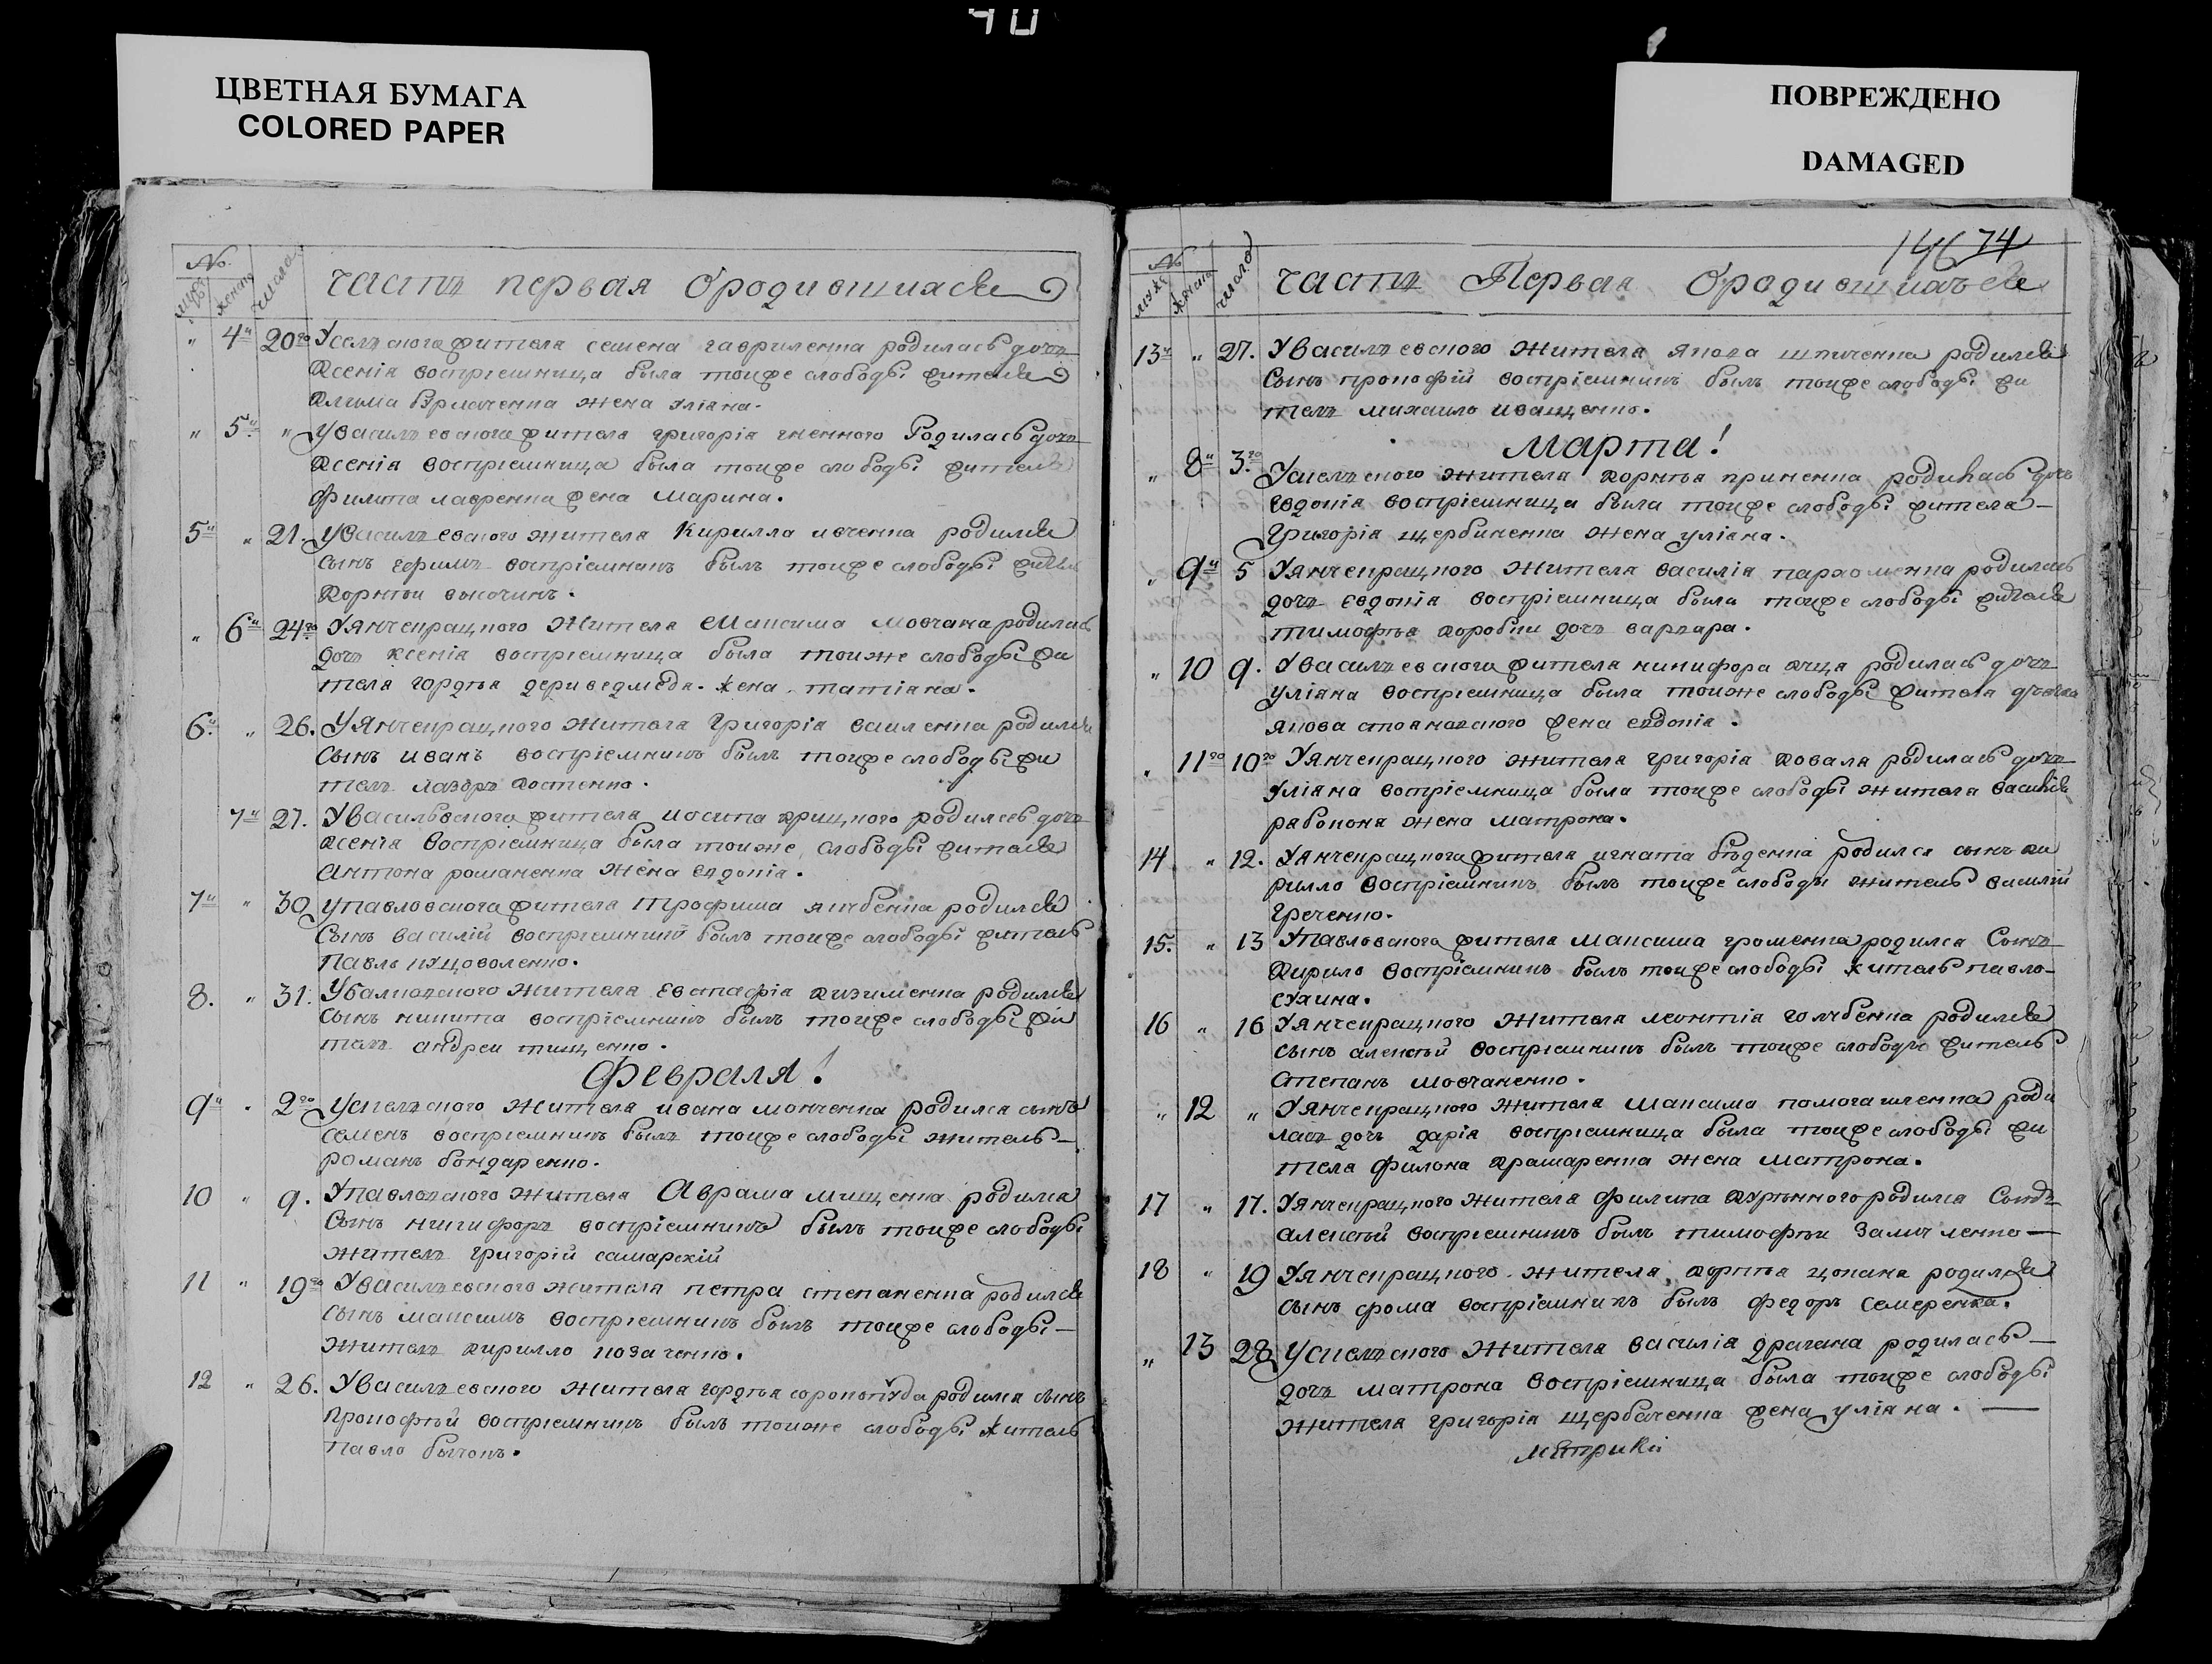 40
ЦВЕТНАЯ БУМАГА
COLORED PAPER
ПОВРЕЖДЕНО
DAMAGED
№
мужс женск числа
часть первая О родившихся
" 4й 20го У сельского жителя семена гавриленка родилась дочь
ксенія воспріемница была тоиже слободы жителя
клима Ермаченка жена уліана.
" 5й " У васильевского жителя григорія гненного Родилась дочь
ксенія воспріемница была тоиже слободы жителя
филипа лавренка жена Марина.
5й " 21. У васильевского жителя Кирилла ивченка родился
сынъ воспріемникъ былъ тоиже слободы житель
корнѣи височинъ.
" 6й 24го У янченрацкого Жителя Максима мовчана родилась
дочь ксенія воспріемница была тоиже слободы жи
теля гордѣя дериведмедя. жена татіана.
6й " 26. У янченрацкого жителя Григорія василенка родился
сынъ иванъ воспріемникъ былъ тоиже слободы жи
тель лазоръ костенко.
7й 27. У васильевского жителя иосипа родилась дочь
ксенія воспріемница была тоиже слободы жителя
антона романенка жена евдокія.
7й " 30 у павловского жителя трофима якубенка родился
сынъ василій воспріемникъ былъ тоиже слободы житель
павлъ
8. " 31. У балковского жителя Евстафія кизименка родился
сынъ никита воспріемникъ былъ тоиже слободы жи
тель андреи тищенко.
Февраля!
9й " 2го у спельского жителя ивана мокченка родился сынъ
семенъ воспріемникъ былъ тоиже слободы житель
романъ бондаренко.
10 " 9. У павловского жителя Аврама мищенка родился
сынъ никифоръ воспріемникъ былъ тоиже слободы
житель григорій самарскій
11 " 19го У васильевского жителя петра степаненка родился
сынъ максимъ воспріемникъ былъ тоиже слободы
житель кирилло козаченко.
12 " 26. У васильевского жителя гордѣя родился сынъ
прокофѣй воспріемникъ былъ тоиже слободы житель
павло бычокъ.
146 74
№
мужс женск числа
часть Первая О родившихъся
13й " 27. У васильевского жителя якова шпиченка родился
сынъ прокофій воспріемникъ былъ тоиже слободы жи
тель михаило иващенко.
марта!
" 8й 3го У жителя корнѣя приненка родилась дочь
евдокія воспріемница была тоиже слободы жителя
Григорія щербиненка жена уліана.
" 9й 5 У янченрацкого жителя василія пархоменка родилась
дочь евдокія воспріемница была тоиже слободы жителя
тимофѣя коробки дочь варвара.
" 10 9. У васильевского жителя никифора родилась дочь
уліана воспріемница была тоиже слободы жителя
якова стояновского жена евдокія.
" 11го 10го У янченрацкого жителя григорія коваля родилась дочь
уліана востріемница была тоиже слободы жителя василія
рабоконя жена матрона.
14 " 12. У янченрацкого жителя игната бѣденка родился сынъ ки
рилло воспріемникъ былъ тоиже слободы житель василій
греченко.
15. " 13 У павловского жителя максима громенка родился Сынъ
кирило воспріемникъ былъ тоиже слободы житель павло
сухина.
16 " 16 У янченрацкого жителя леонтія голубенка родился
сынъ алексѣй воспріемникъ былъ тоиже слободы житель
степанъ мовчаненко.
" 12 " У янченрацкого жителя максима помогаиленка роди
лась дочь дарія воспріемница была тоиже слободы жи
теля филона крамаренка жена матрона.
17 " 17. У янченрацкого жителя филипа курѣнного родился Сынъ
алексѣй воспріемникъ былъ тимофѣи
18 " 19 У янченрацкого жителя корнѣя цопана родился
сынъ фома воспріемникъ былъ федоръ семеренка.
" 13 28 У жителя василія драгана родилась
дочь матрона воспріемница была тоиже слободы
жителя григорія щербаченка жена уліана.
метрики